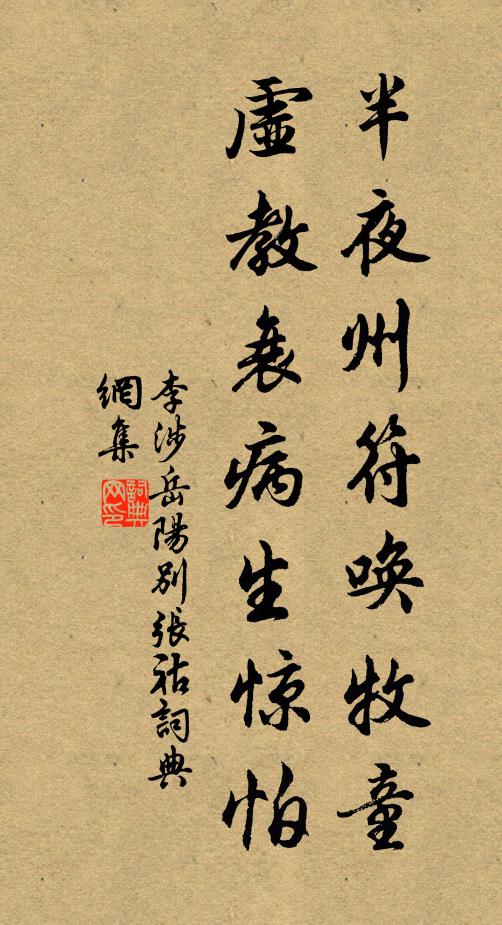 半夜州符唤牧童
虚教衰病生惊怕
李涉岳陽别張祜詞典
網集
詞典網印